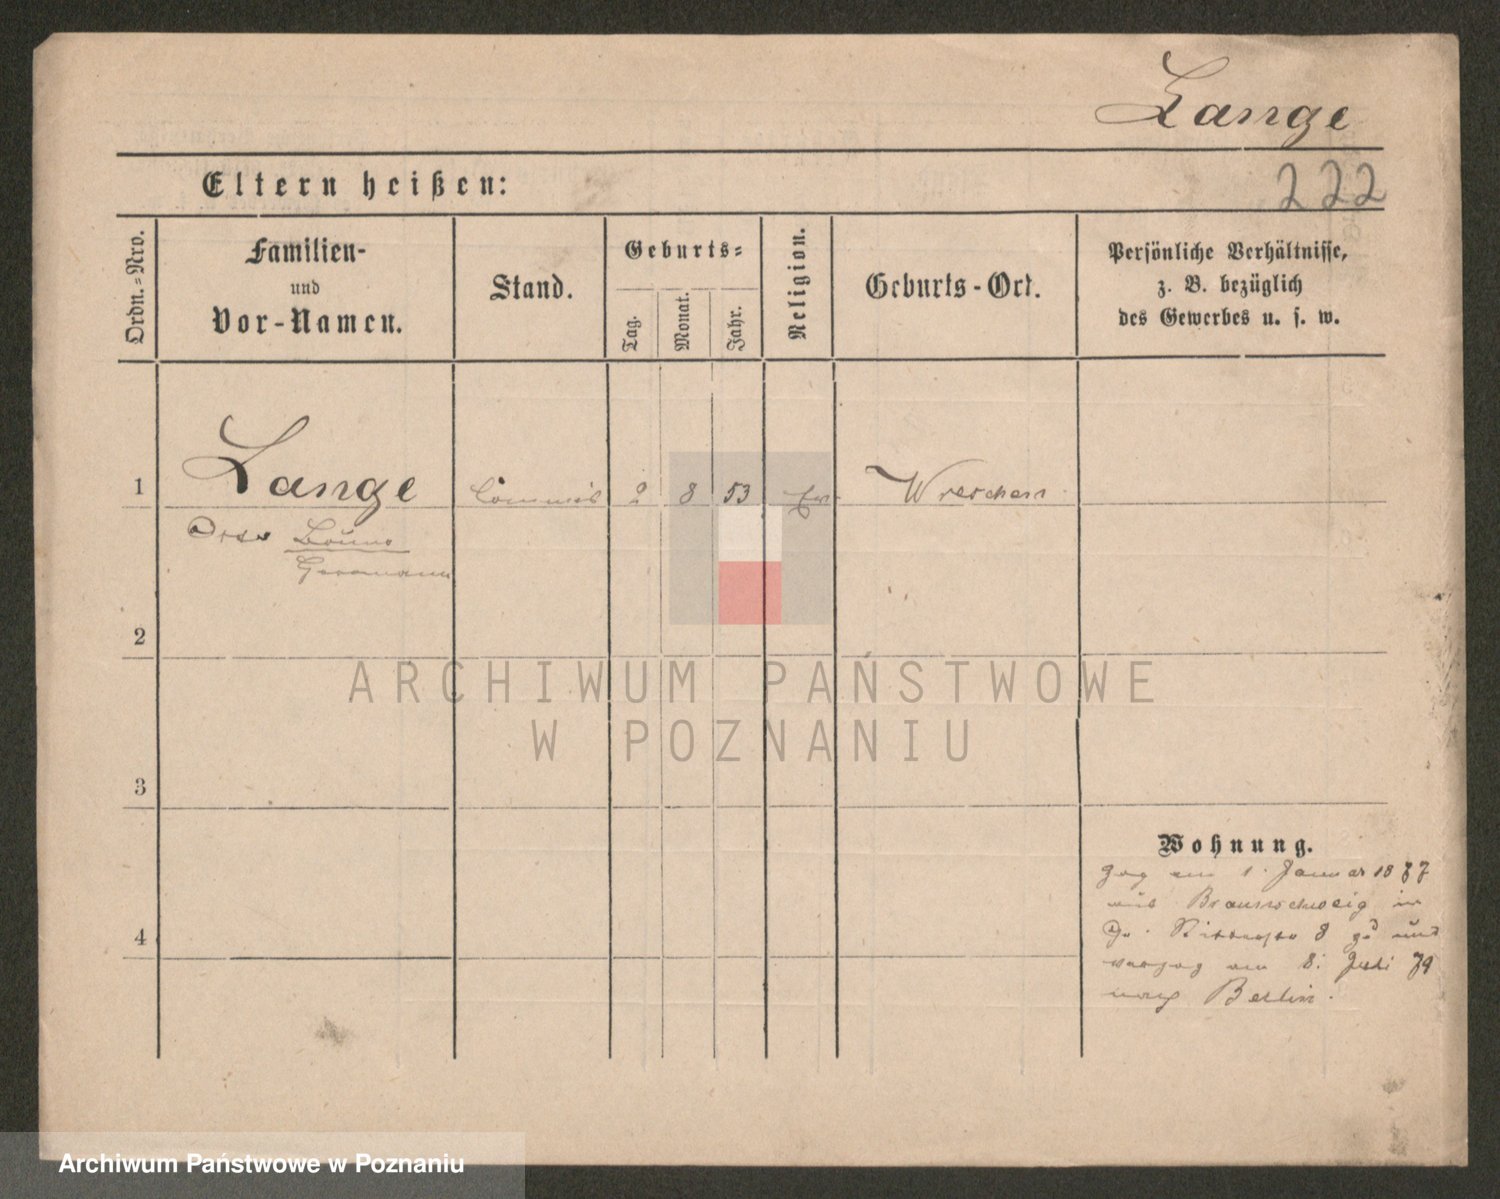 Lange
Eltern heißen:
222
Ordn.-Nro.
Familien-
und
Vor-Namen.
Stand.
Geburts-
Tag.
Monat.
Jahr.
Religion.
Geburts-Ort.
Persönliche Verhältnisse,
z. B. bezüglich
des Gewerbes u. s. w.
1 Lange Commis 2 8 53 Ev. Wreschen
Otto Bruno
Hermann
2
3
4
Wohnung.
zog am 1. Januar 1877
aus Braunschweig in
Ritterstr 8 zu und
verzog am 8. Juli 79
nach Berlin.
ARCHIWUM PAŃSTWOWE
W POZNANIU
Archiwum Państwowe w Poznaniu